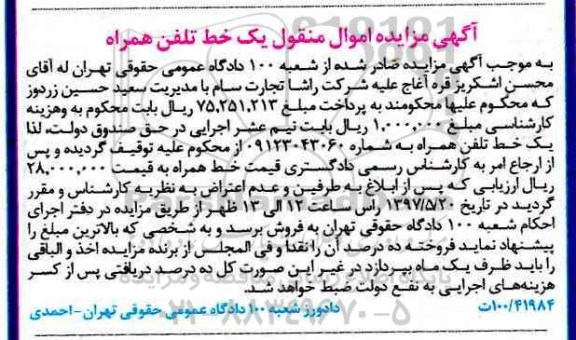 آگهی مزایده اموال منقول یک خط تلفن همراه
به موجب آگهی مزایده صادر شده از شعبه ۱۰۰ دادگاه عمومی حقوقی تهران له آقای
محسن اشکریز قره آغاج علیه شرکت راشا تجارت سام با مدیریت سعید حسین زردوز
که محکوم علیها محکومند به پرداخت مبلغ ۷۵,۲۵۱,۲۱۳ ریال بابت محکوم به وهزینه
کارشناسی مبلغ ۱,۰۰۰,۰۰۰ ریال بابت نیم عشر اجرایی در حق صندوق دولت، لذا
یک خط تلفن همراه به شماره ۰۹۱۲۳۰۴۳۰۶۰ از محکوم علیه توقیف گردیده و پس
از ارجاع امر به کارشناس رسمی دادگستری قیمت خط همراه به قیمت ۲۸,۰۰۰,۰۰۰
ریال ارزیابی که پس از ابلاغ به طرفین و عدم اعتراض به نظریه کارشناس و مقرر
گردید در تاریخ ۱۳۹۷/۵/۲۰ راس ساعت ۱۲ الی ۱۳ ظهر از طریق مزایده در دفتر اجرای
احکام شعبه ۱۰۰ دادگاه حقوقی تهران به فروش برسد و به شخصی که بالاترین مبلغ را
پیشنهاد نماید فروخته ده درصد آن را نقدا و فی المجلس از برنده مزایده اخذ و الباقی
را باید ظرف یک ماه بپردازد در غیر این صورت کل ده درصد دریافتی پس از کسر
هزینه‌های اجرایی به نفع دولت ضبط خواهد شد.
۱۰۰/۴۱۹۸۴ت دادورز شعبه ۱۰۰ دادگاه عمومی حقوقی تهران - احمدی
۰۲۱-۸۸۳۴۹۶۷۰-۵